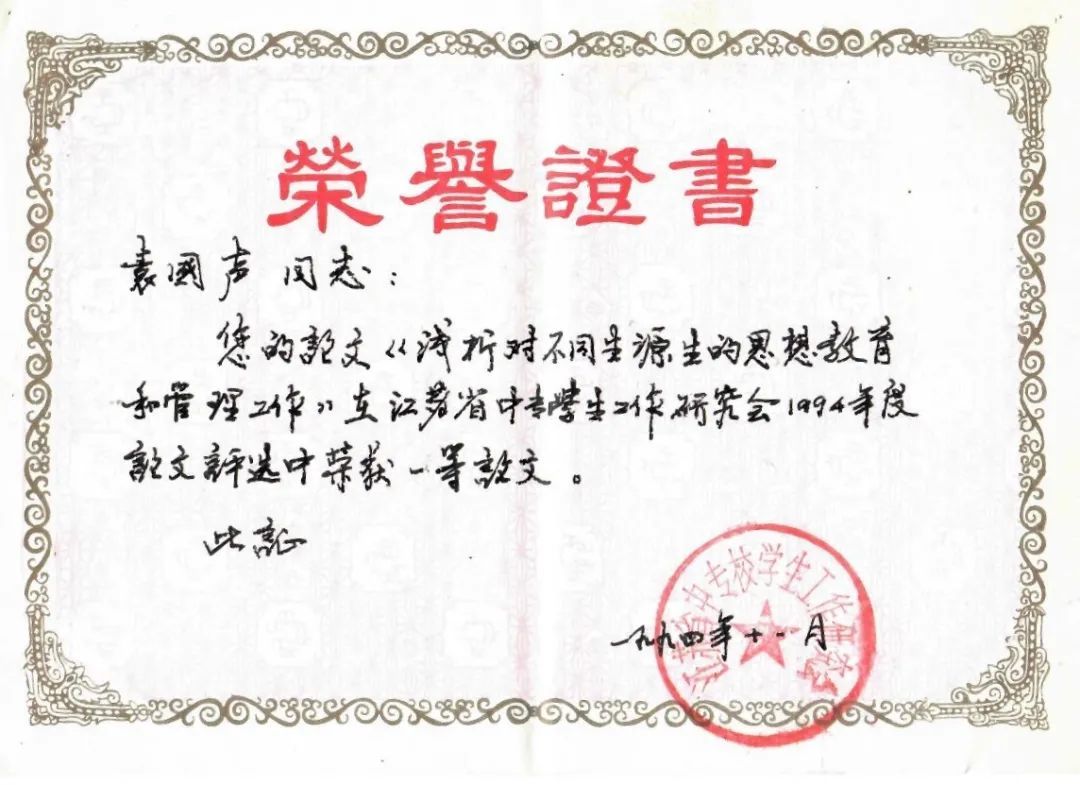 榮譽證書
袁國声 同志：
您的論文《浅析对不同生源生的思想教育
和管理工作》在江苏省中专学生工作研究会1994年度
論文評选中荣获一等論文。
此証
一九九四年十一月
江苏省中专校学生工作研究会